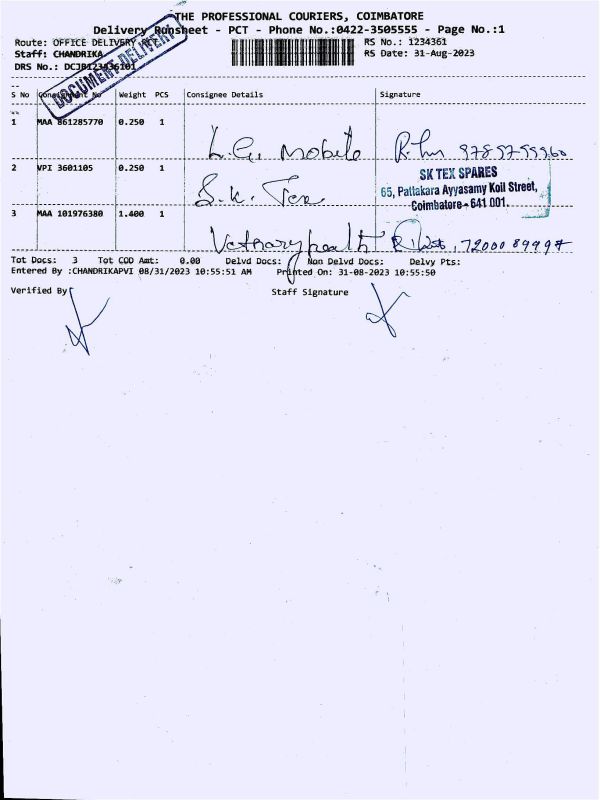 THE PROFESSIONAL COURIERS, COIMBATORE
Delivery Runsheet - PCT - Phone No.:0422-3505555 - Page No.:1
Route: OFFICE DELIVERY
RS No.: 1234361
Staff: CHANDRIKA
RS Date: 31-Aug-2023
DRS No.:
DOCUMENT DELIVERY
S No Consignment No Weight PCS Consignee Details Signature
1 MAA 861285770 0.250 1
L.G. Mobile
2 VPI 3601105 0.250 1
S.K. Tex
SK TEX SPARES
65, Pattakara Ayyasamy Koil Street,
Coimbatore - 641 001.
3 MAA 101976380 1.400 1
Tot Docs: 3 Tot COD Amt: 0.00 Delvd Docs: Non Delvd Docs: Delvy Pts:
Entered By :CHANDRIKAPVI 08/31/2023 10:55:51 AM Printed On: 31-08-2023 10:55:50
Verified By
Staff Signature